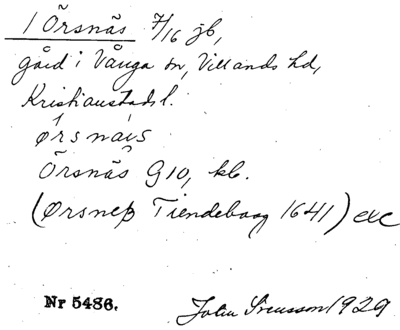 1 Örsnäs 7/16 jb,
gård i Vånga sn, Villands hd,
Kristianstads l.
Ørsnäis
Örsnäs G10, kb.
(Ørsnep Tiendebog 1641) exc
Nr 5486. John Svensson 1929